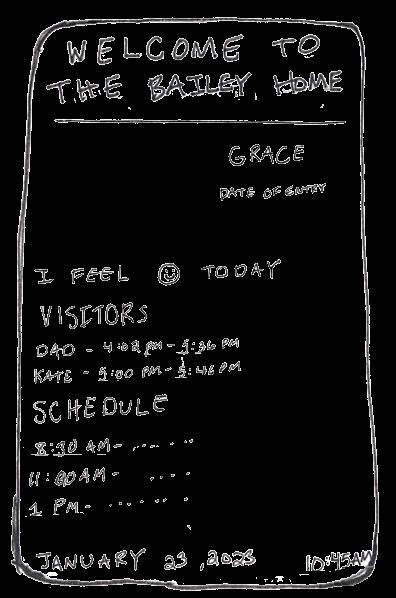 WELCOME TO
THE BAILEY HOME
GRACE
DATE OF ENTRY
I FEEL ☺ TODAY
VISITORS
DAD - 4:02 PM - 5:36 PM
KATE - 5:00 PM - 5:46 PM
SCHEDULE
8:30 AM - .......
11:00 AM - ....
1 PM - .......
JANUARY 23, 2023 10:45AM